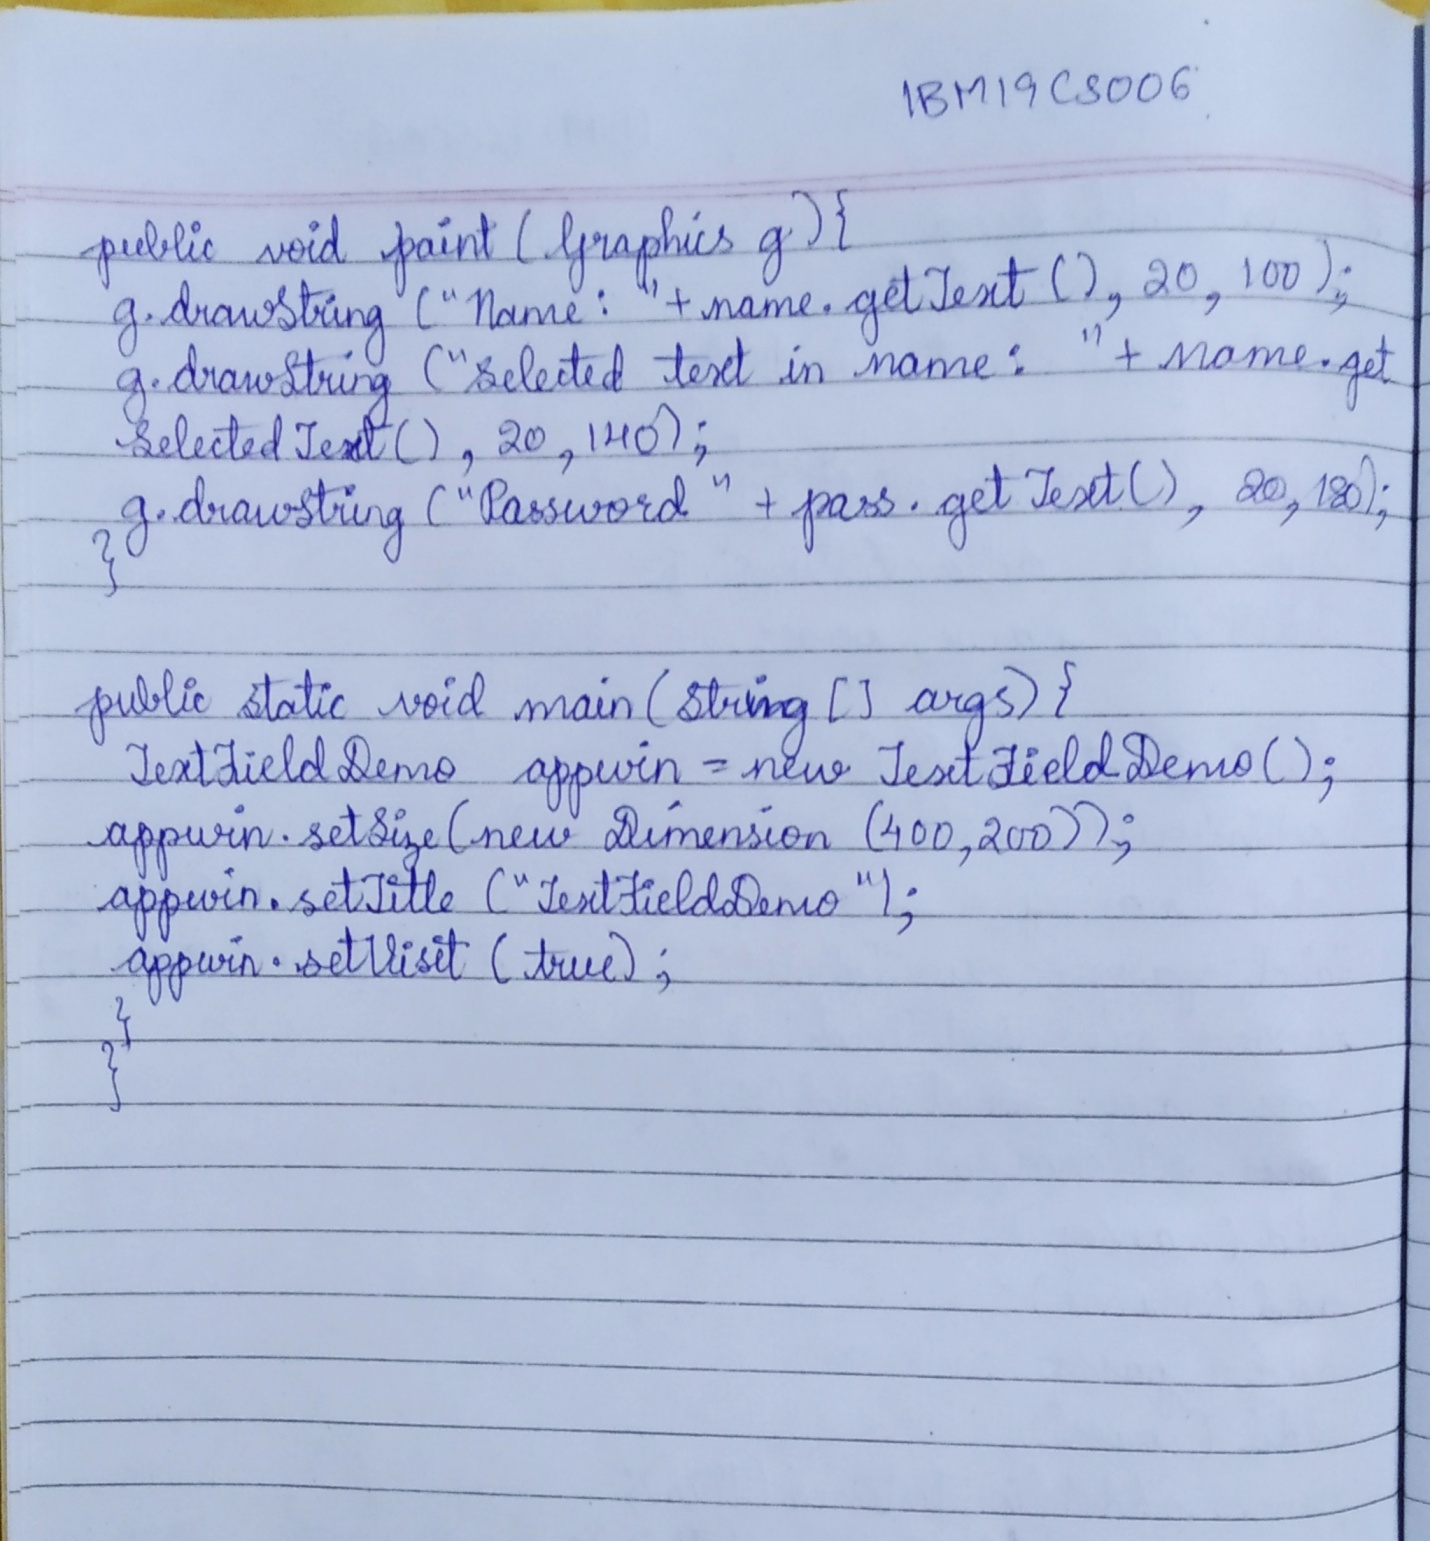 1BM19CS006
public void paint (Graphics g){
g.drawString ("Name: "+name.getText(), 20, 100);
g.drawString ("Selected text in name: "+ name.get
SelectedText(), 20, 140);
g.drawString ("Password" + pass.getText(), 20, 180);
}
public static void main(String [] args){
TextFieldDemo appwin = new TextFieldDemo();
appwin.setSize(new Dimension (400,200));
appwin.setTitle ("TextFieldDemo");
appwin.setVisit (true);
}
}